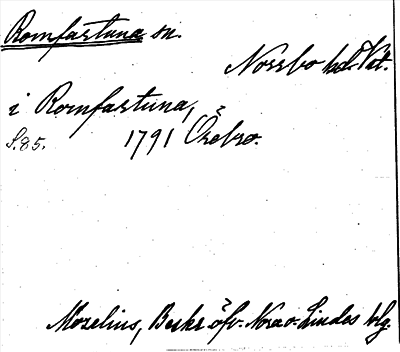 Romfartuna sn.
Norrbo hd. Vstm.
i Romfartuna,
S.85.
1791 Örebro.
Morelius, Beskr öfv. Nora o. Lindes blg.